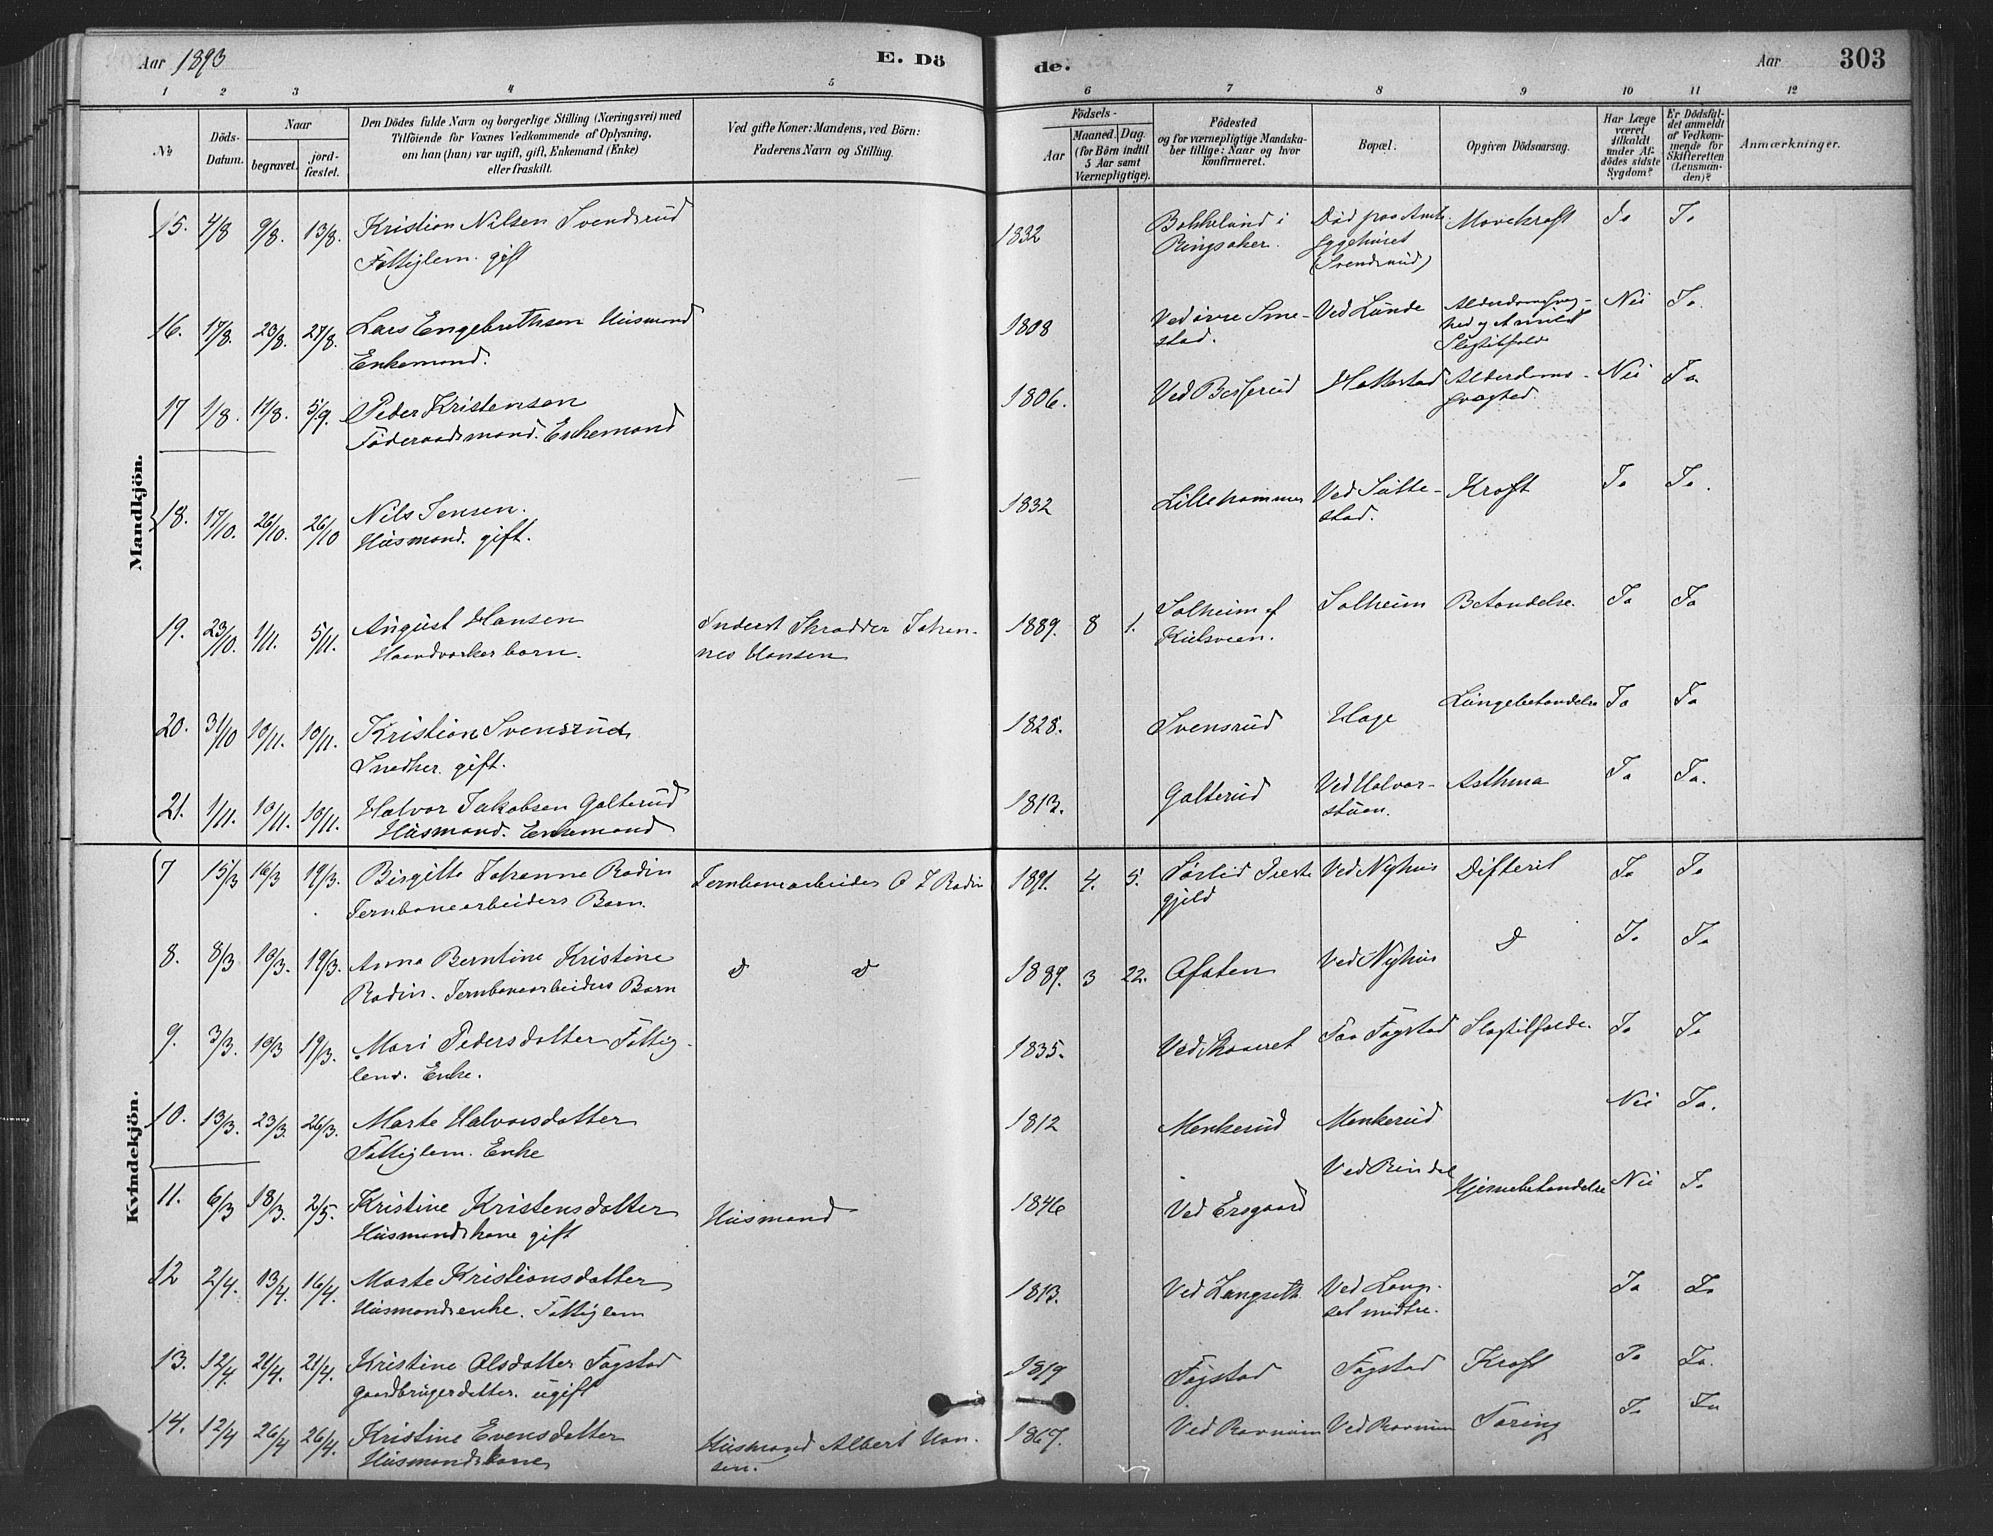 Aar 1893
E. Dö
de.
Aar
303
1 2 3 4 5 6 7 8 9 10 11 12
No
Döds-
Datum.
Naar
begravet.
jord-
fæstet.
Den Dödes fulde Navn og borgerlige Stilling (Næringsvei) med
Tilföiende for Voxnes Vedkommende af Oplysning,
om han (hun) var ugift, gift, Enkemand (Enke)
eller fraskilt.
Ved gifte Koner: Mandens, ved Börn:
Faderens Navn og Stilling.
Födsels-
Aar
Maaned. Dag.
(for Börn indtil
5 Aar samt
Værnepligtige).
Födested
og for værnepligtige Mandska-
ber tillige: Naar og hvor
konfirmeret.
Bopæl.
Opgiven Dödsaarsag.
Har Læge
været
tilkaldt
under Af-
dödes sidste
Sygdom?
Er Dödsfal-
det anmeldt
af Vedkom-
mende for
Skifteretten
(Lensman-
den)?
Anmærkninger.
Mandkjön.
15. 4/8 9/8. 13/8. Kristian Nilsen Svendsrud
Fattiglem. gift
1832 Bakkelund i
Ringsaker.
Död paa Amts
sygehuset
(Svendsrud)
Mavekraft Ja Ja
16. 17/8. 23/8. 27/8. Lars Engebrethsen Husmand
Enkemand.
1808 Ved övre Sme-
stad.
Ved Lunde
Alderdomssvag-
hed og
Slagtilfælde
Nei Ja.
17 1/8. 11/8. 5/9. Peder Kristensen
Föderaadsmand. Enkemand
1806. Ved Besserud Hattestad Alderdoms-
svaghed
Nei Ja.
18. 17/10. 26/10. 26/10 Nils Jensen.
Husmand. gift.
1832 Lillehammer Ved Sutte-
stad.
Kraft Ja Ja.
19. 23/10. 1/11. 5/11. August Hansen
Haandværkerbarn.
Inderst Skrædder Johan-
nes Hansen
1889. 8 1. Solheim af
Solheim Betændelse. Ja Ja
20. 31/10 10/11. 10/11. Kristian Svensrud
Snedker. gift.
1828. Svensrud Hage Lungebetændelse Ja Ja
21. 1/11. 10/11. 10/11. Halvor Jakobsen Galterud
Husmand. Enkemand
1813. Galterud Ved Halvor-
stuen.
Asthma Ja Ja.
Kvindekjön.
7 15/3 16/3 19/3. Birgitte Johanne Rodin
Jernbanearbeiders Barn.
Jernbanearbeider O L Rodin
1891. 4. 5. Præste
gjeld
Ved Nyhus Difterit Ja Ja
8. 8/3 10/3. 19/3. Anna Berntine Kristine
Rodin. Jernbanearbeiders Barn
d d
1889. 3 22. Ofoten Ved Nyhus d Ja Ja
9. 3/3. 10/3 19/3. Mari Pedersdatter Fattig-
lem. Enke.
1835. Ved Skaaret Paa Fagstad Slagtilfælde. Ja Ja
10. 13/3. 23/3. 26/3. Marte Halvorsdatter
Fattiglem. Enke
1812 Menkerud Menkerud Nei Ja.
11. 6/3 18/3. 2/5. Kristine Kristensdatter
Husmandskone gift
Husmand
1846 Ved Ersgaard Ved Rindal Hjernebetændelse Nei Ja
12 2/4. 13/4. 16/4. Marte Kristiansdatter
Husmandsenke. Fattiglem
1813. Ved Langseth Ved Lang-
set midtre.
Ja Ja
13. 12/4. 21/4. 21/4. Kristine Olsdatter Fagstad
Gaardbrugerdatter. ugift
1819 Fagstad Fagstad Kraft Ja Ja.
14. 12/4 26/4 26/4. Kristine Evensdatter
Husmandskone
Husmand Albert Han-
sen.
1867. Ved Ravnum Ved Ravnum Tæring Ja Ja